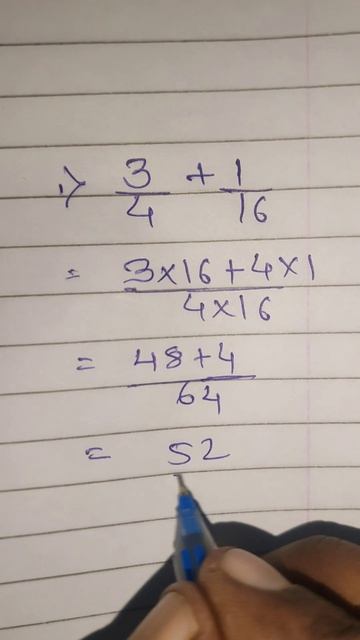 1) 3/4 + 1/16
= 3×16+4×1 / 4×16
= 48+4 / 64
= 52